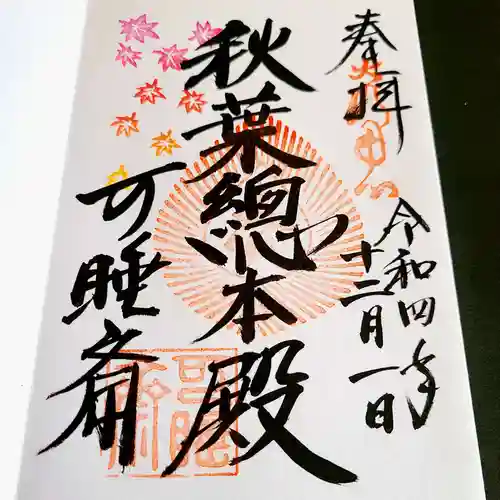 奉拝
令和四年
十二月一日
秋葉總本殿
可睡斎